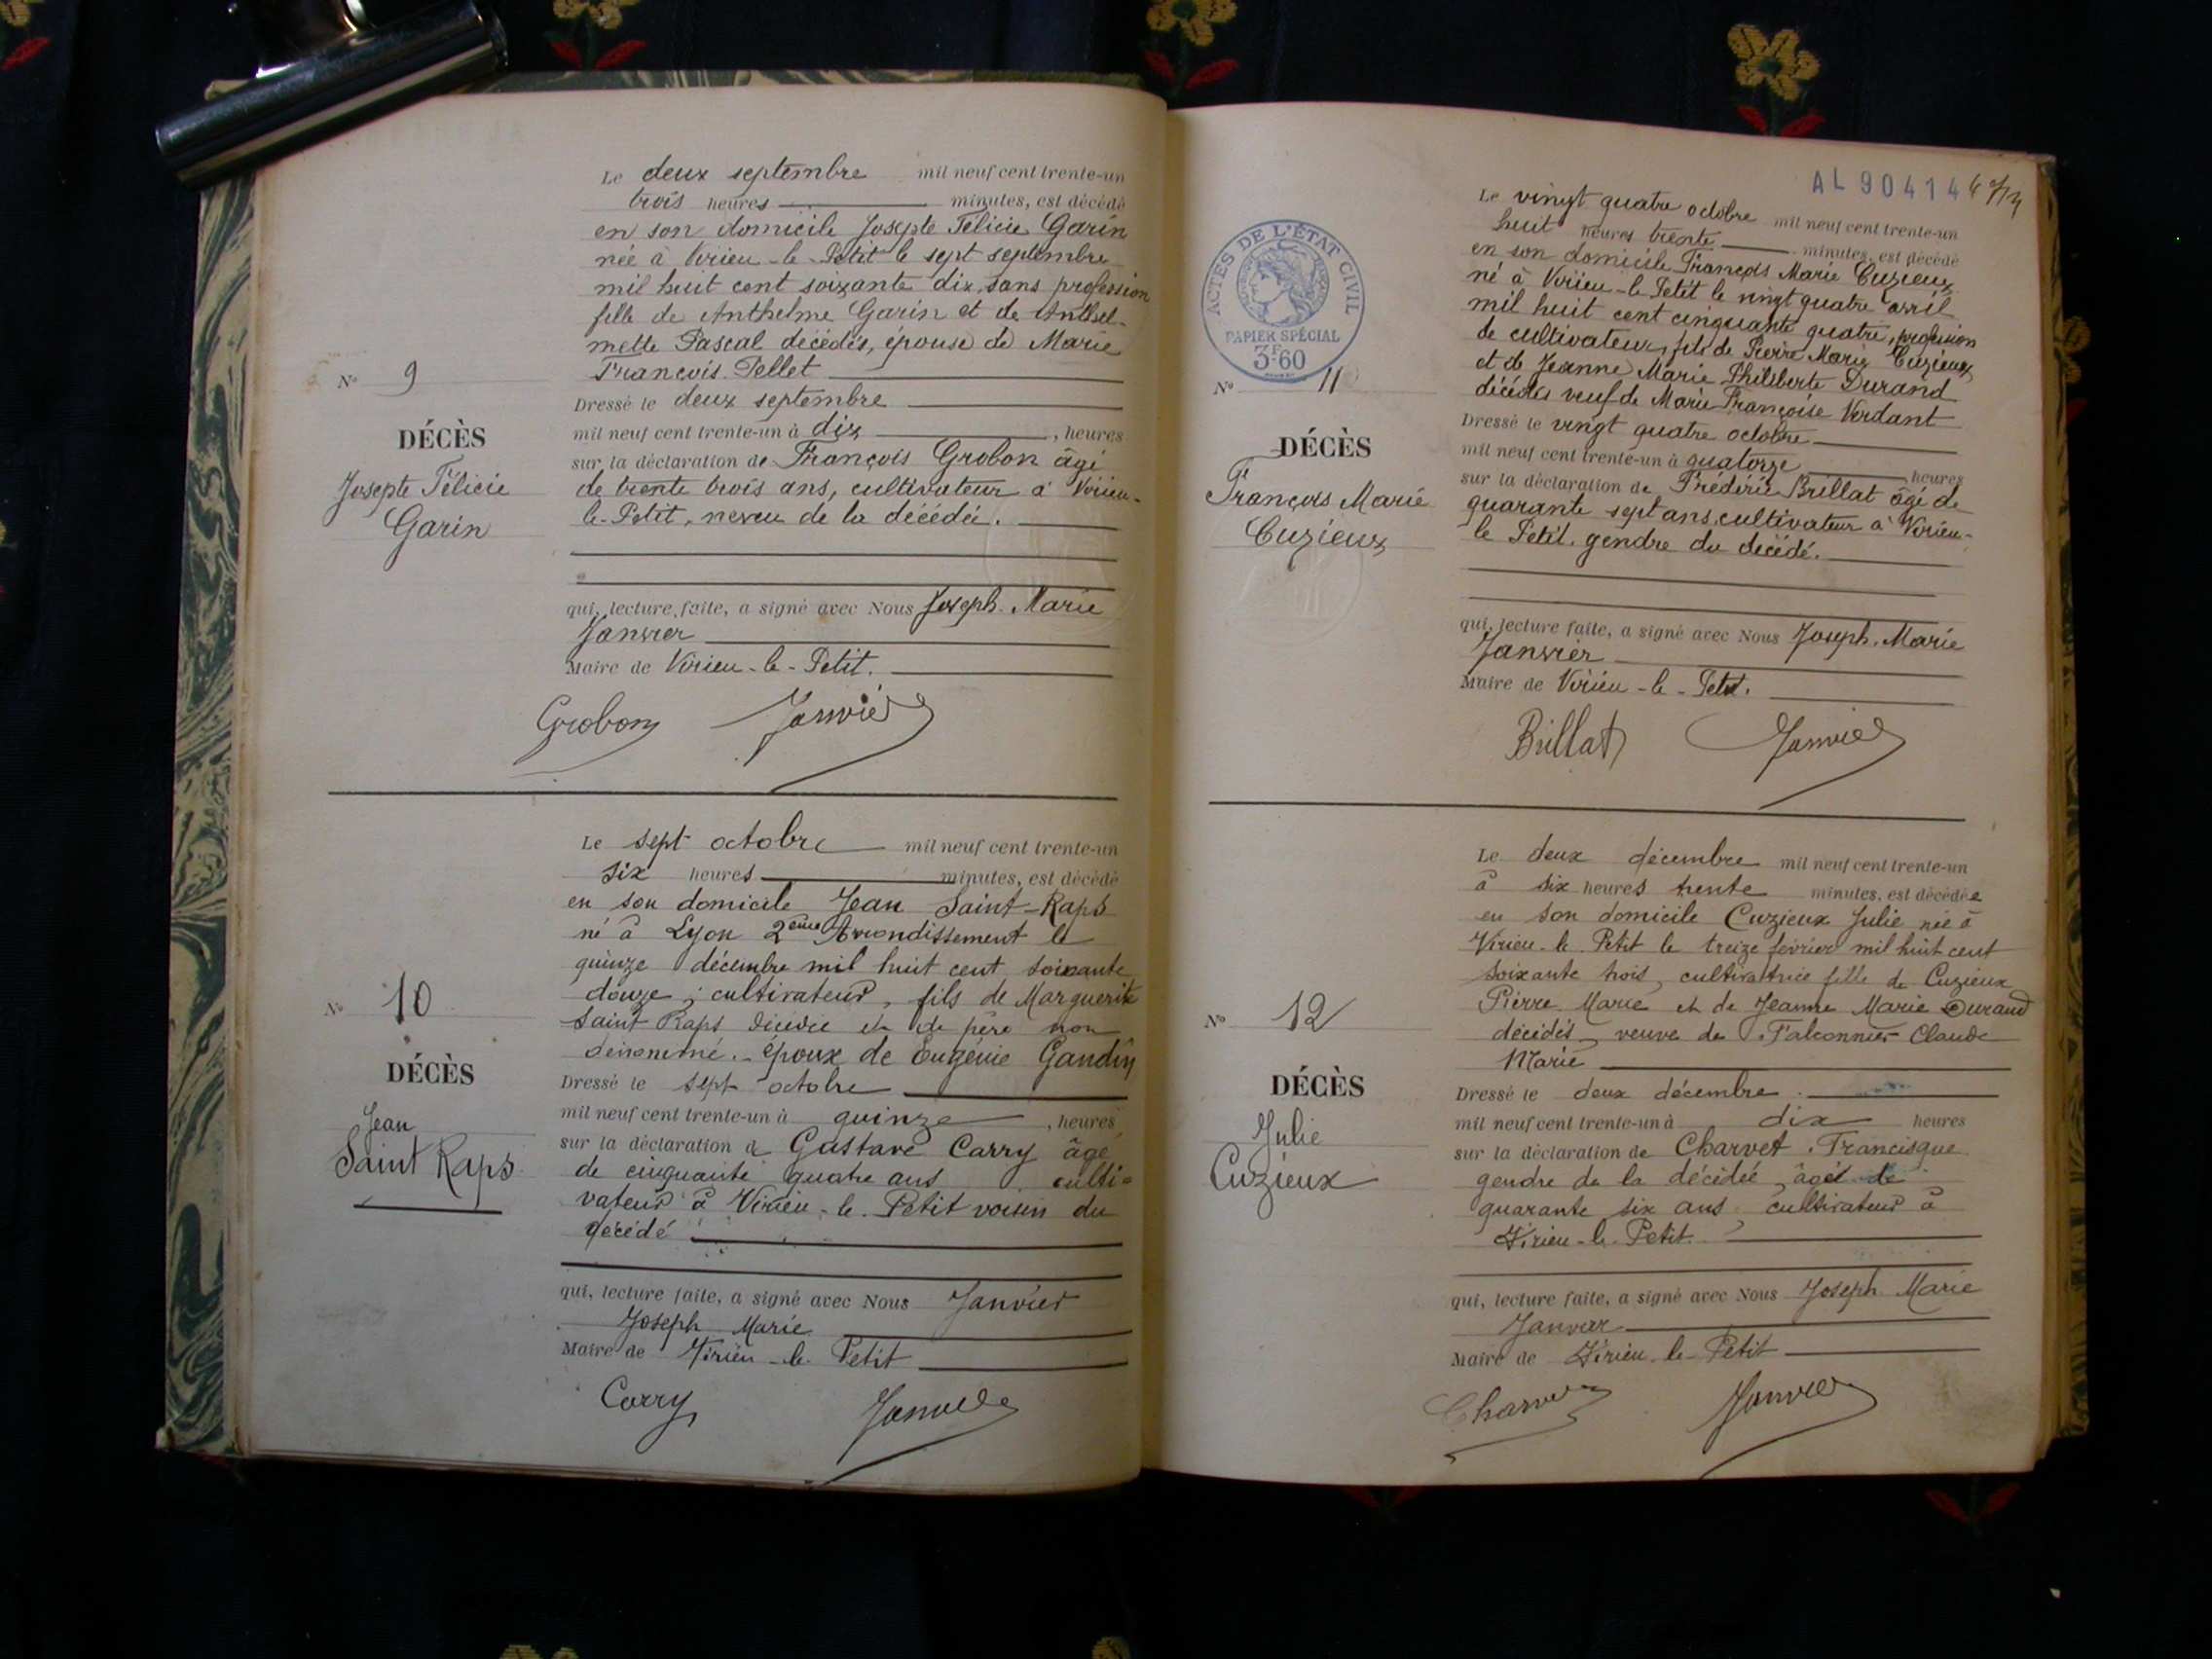 Le deux septembre mil neuf cent trente-un
trois heures minutes, est décédé
en son domicile Josepte Félicie Garin
née à Virieu-le-Petit le sept septembre
mil huit cent soixante dix, sans profession
fille de Anthelme Garin et de Anthel-
mette Pascal décédés, épouse de Marie
François Pellet
N° 9
DÉCÈS
Josepte Félicie
Garin
Dressé le deux septembre
mil neuf cent trente-un à dix, heures
sur la déclaration de François Grobon âgé
de trente trois ans, cultivateur à Virieu-
le-Petit, neveu de la décédée.
qui, lecture faite, a signé avec Nous Joseph. Marie
Janvier
Maire de Virieu-le-Petit.
Grobon Janvier
Le sept octobre mil neuf cent trente-un
six heures minutes, est décédé
en son domicile Jean Saint-Raps
né à Lyon 2ème Arrondissement le
quinze décembre mil huit cent soixante
douze, cultivateur, fils de Marguerite
Saint Raps décédée et de père non
dénommé. - époux de Eugénie Gandin
N° 10
DÉCÈS
Jean
Saint Raps
Dressé le sept octobre
mil neuf cent trente-un à quinze, heures
sur la déclaration de Gustave Carry âgé
de cinquante quatre ans culti=
vateur à Virieu-le-Petit voisin du
décédé
qui, lecture faite, a signé avec Nous Janvier
Joseph Marie
Maire de Virieu-le-Petit
Carry Janvier
AL 904144
ACTES DE L'ÉTAT CIVIL
PAPIER SPÉCIAL
3F60
Le vingt quatre octobre mil neuf cent trente-un
huit heures trente minutes, est décédé
en son domicile François Marie Cuzieux
né à Virieu-le-Petit le vingt quatre avril
mil huit cent cinquante quatre, profession
de cultivateur, fils de Pierre Marie Cuzieux
et de Jeanne Marie Philiberte Durand
décédés veuf de Marie Françoise Verdant
N° 11
DÉCÈS
François Marie
Cuzieux
Dressé le vingt quatre octobre
mil neuf cent trente-un à quatorze heures
sur la déclaration de Frédéric Brillat âgé de
quarante sept ans, cultivateur à Virieu-
le Petit. gendre du décédé.
qui, lecture faite, a signé avec Nous Joseph. Marie
Janvier
Maire de Virieu-le-Petit.
Brillat Janvier
Le deux décembre mil neuf cent trente-un
à six heures trente minutes, est décédée
en son domicile Cuzieux Julie née à
Virieu-le-Petit le treize février mil huit cent
soixante trois, cultivatrice fille de Cuzieux
Pierre Marie et de Jeanne Marie Durand
décédés, veuve de Falconnier Claude
Marie
N° 12
DÉCÈS
Julie
Cuzieux
Dressé le deux décembre
mil neuf cent trente-un à dix heures
sur la déclaration de Charvet Francisque
gendre de la décédée, âgé de
quarante six ans, cultivateur à
Virieu-le-Petit.
qui, lecture faite, a signé avec Nous Joseph Marie
Janvier
Maire de Virieu-le-Petit
Charvet Janvier